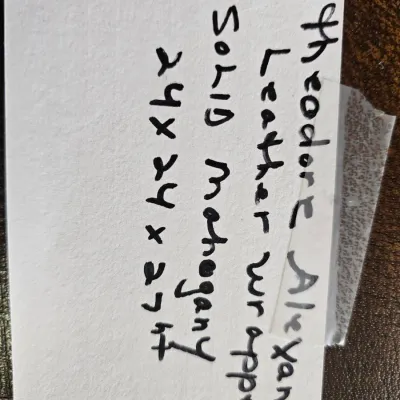 theodore Alexan
Leather wrapp
SOLID mahogany
24 x 24 x 27 ht